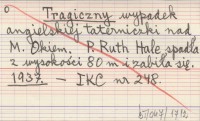 Tragiczny wypadek
angielskiej taterniczki nad
M. Okiem. P. Ruth Hale spadła
z wysokości 80 m i zabiła się.
1937. — IKC nr 248.